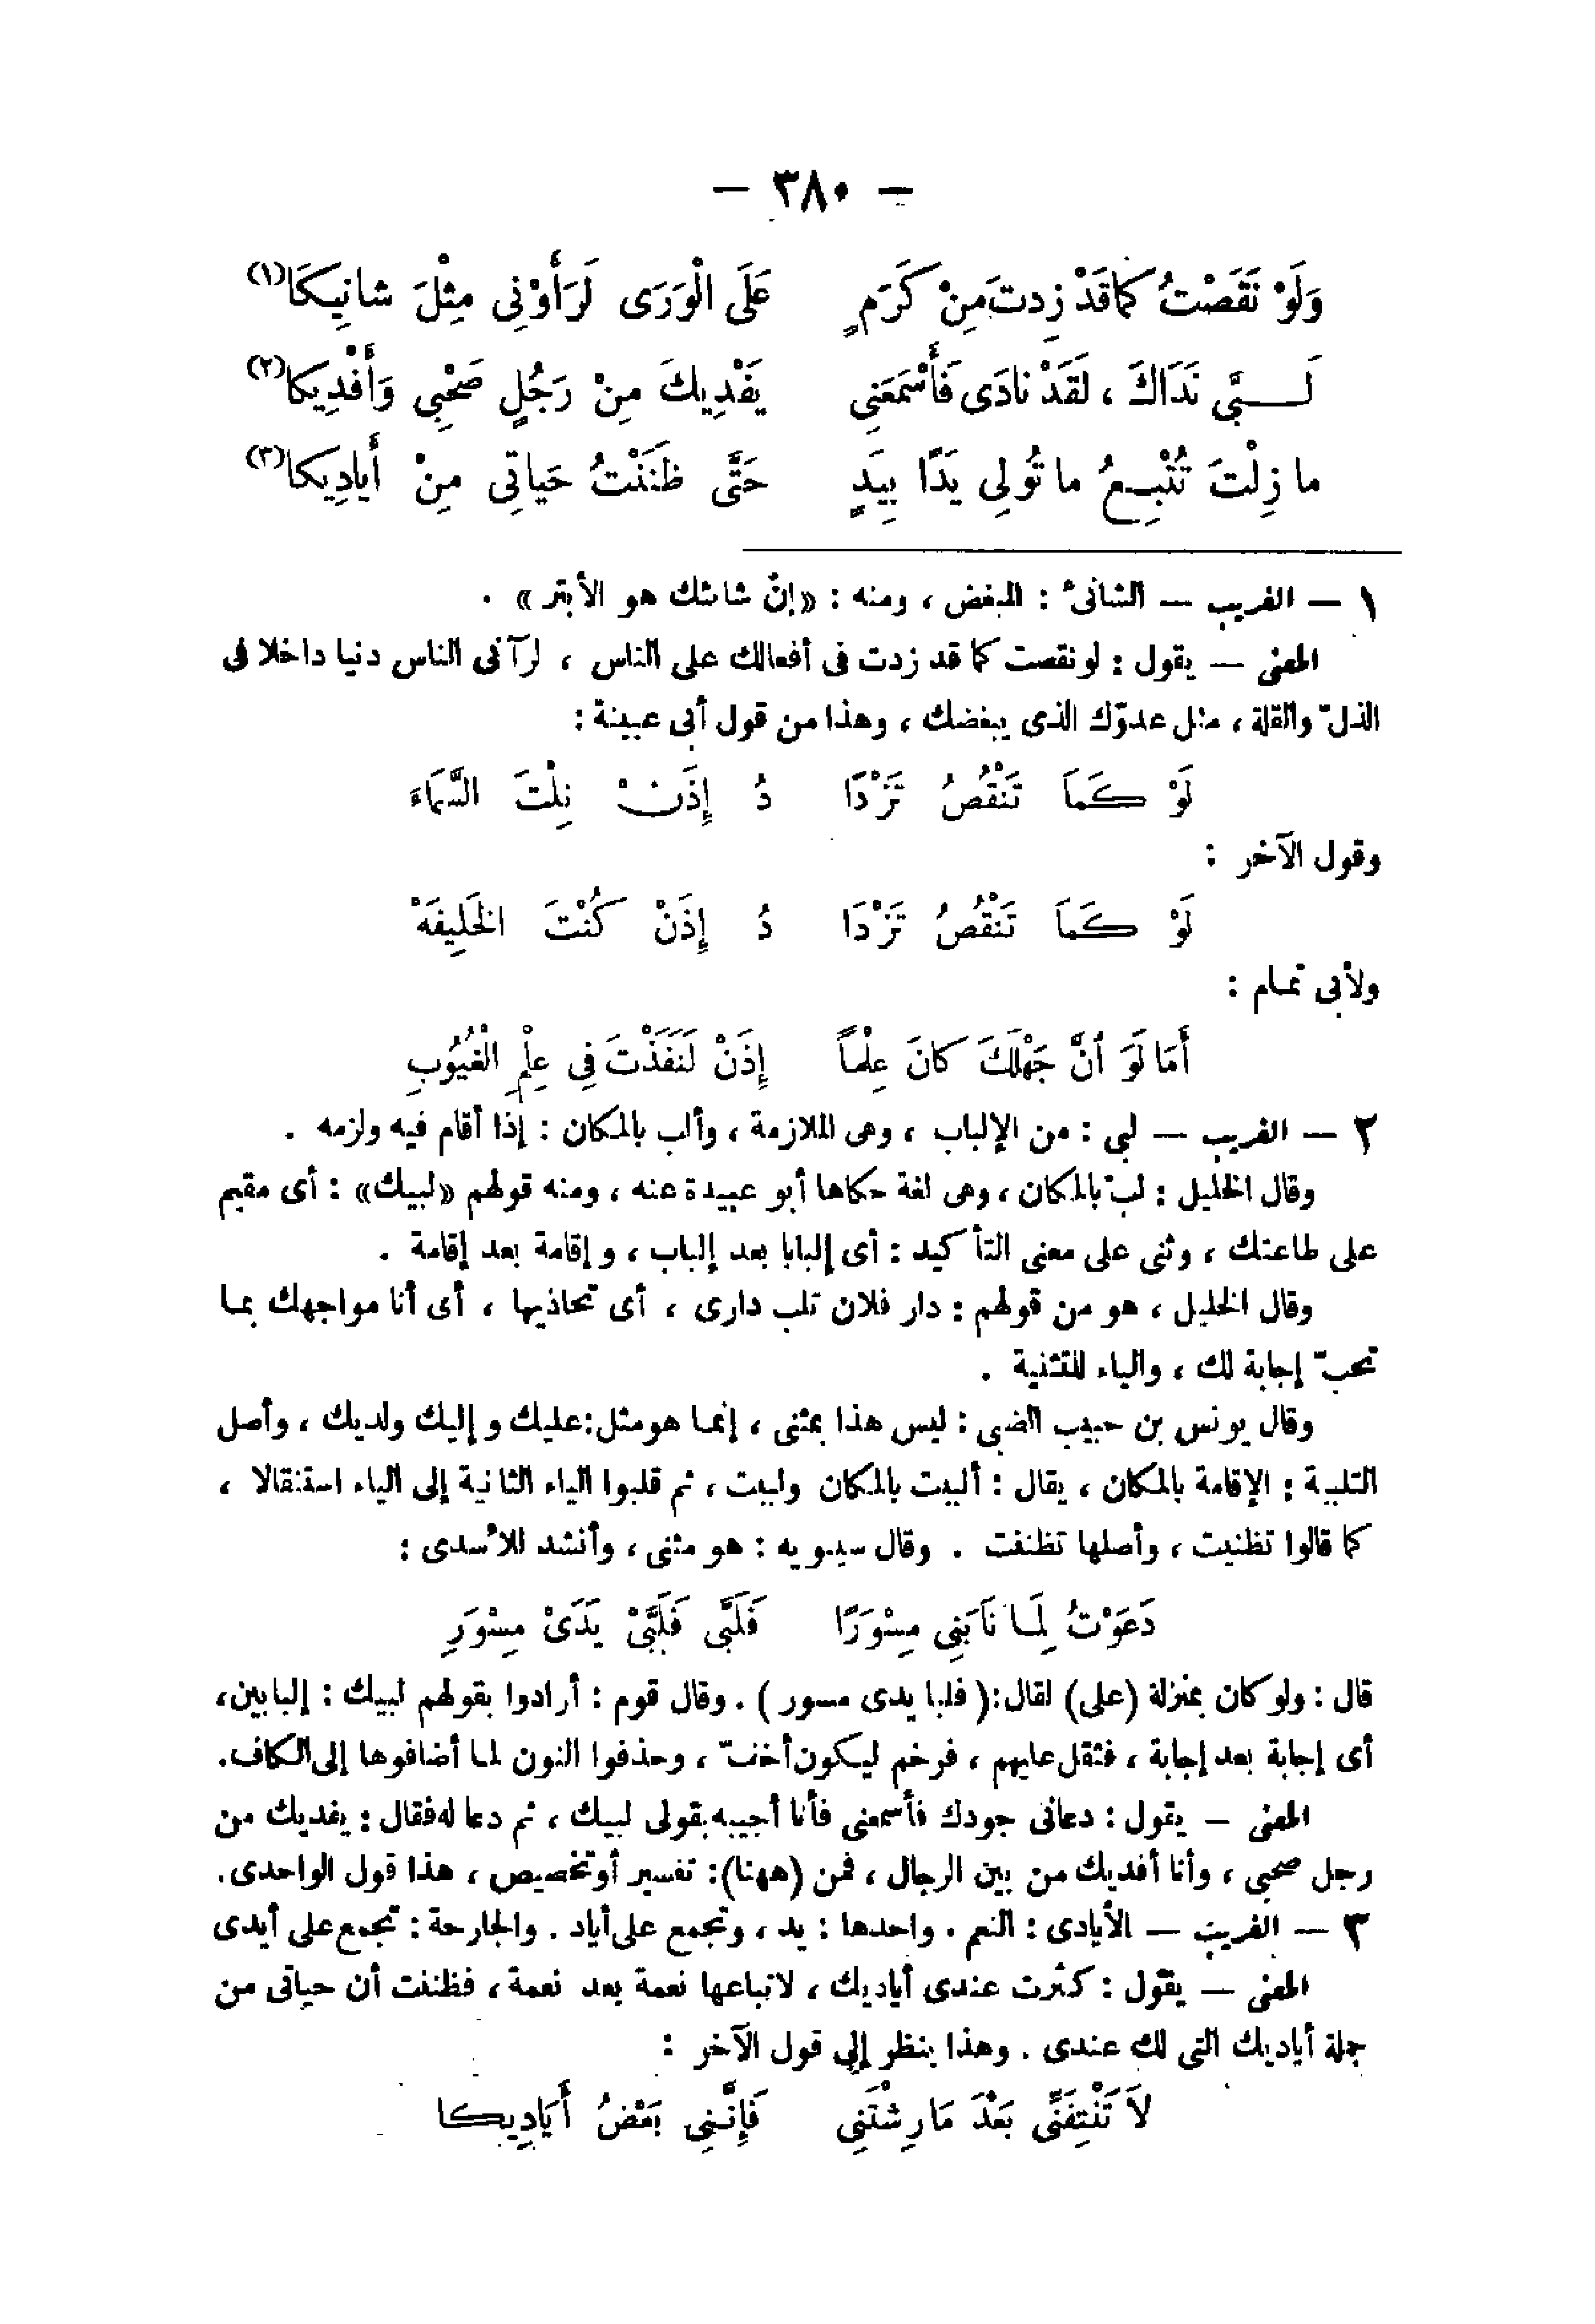 — ٣٨٠ —
وَلَوْ نَقَصْتُ كَمَا قَدْ زِدتَ مِنْ كَرَمٍ عَلَى الْوَرَى لَرَأَوْنِى مِثْلَ شانِيكَا (١)
لَبَّى نَدَاكَ ، لَقَدْ نادَى فَأَسْمَعَنِى يَفْدِيكَ مِنْ رَجُلٍ صَحْبِى وَأَفْدِيكا (٢)
ما زِلْتَ تُتْبِعُ ما تُولِى يَدًا بِيَدٍ حَتَّى ظَنَنْتُ حَياتِى مِنْ أَيادِيكا (٣)
١ — الغريب — الشانئ : المبغض ، ومنه : «إنّ شانئك هو الأبتر» .
المعنى — يقول : لو نقصت كما قد زدت فى أفعالك على الناس ، لرآنى الناس دنيا داخلا فى
الذلّ والقلة ، مثل عدوّك الذى يبغضك ، وهذا من قول أبى عيينة :
لَوْ كَمَا تَنْقُصُ تَزْدَا دُ إِذَنْ نِلْتَ السَّمَاءَ
وقول الآخر :
لَوْ كَمَا تَنْقُصُ تَزْدَا دُ إِذَنْ كُنْتَ الخَلِيفَهْ
ولأبى تمام :
أَمَا لَوَ أنَّ جَهْلَكَ كانَ عِلْماً إِذَنْ لَنَفَذْتَ فِى عِلْمِ الْغُيُوبِ
٢ — الغريب — لبى : من الإلباب ، وهى الملازمة ، وألب بالمكان : إذا أقام فيه ولزمه .
وقال الخليل : لبّ بالمكان ، وهى لغة حكاها أبو عبيدة عنه ، ومنه قولهم «لبيك» : أى مقيم
على طاعتك ، وثنى على معنى التأكيد : أى إلبابا بعد إلباب ، وإقامة بعد إقامة .
وقال الخليل ، هو من قولهم : دار فلان تلب دارى ، أى تحاذيها ، أى أنا مواجهك بما
تحبّ إجابة لك ، والياء للتثنية .
وقال يونس بن حبيب الضبى : ليس هذا بمثنى ، إنما هو مثل : عليك وإليك ولديك ، وأصل
التلبية : الإقامة بالمكان ، يقال : ألبيت بالمكان ولبيت ، ثم قلبوا الياء الثانية إلى الياء استثقالا ،
كما قالوا تظنيت ، وأصلها تظننت . وقال سيبويه : هو مثنى ، وأنشد للأسدى :
دَعَوْتُ لِمَا نَابَنِى مِسْوَرًا فَلَبَّى فَلَبَّىْ يَدَىْ مِسْوَرِ
قال : ولو كان بمنزلة (على) لقال : (فلبا يدى مسور) . وقال قوم : أرادوا بقولهم لبيك : إلبابين ،
أى إجابة بعد إجابة ، فثقل عليهم ، فرخم ليكون أخفّ ، وحذفوا النون لما أضافوها إلى الكاف .
المعنى — يقول : دعانى جودك فأسمعنى فأنا أجيبه بقولى لبيك ، ثم دعا له فقال : يفديك من
رجل صحبى ، وأنا أفديك من بين الرجال ، فمن (ههنا) : تفسير أو تخصيص ، هذا قول الواحدى .
٣ — الغريب — الأيادى : النعم . واحدها : يد ، وتجمع على أياد . والجارحة : تجمع على أيدى
المعنى — يقول : كثرت عندى أياديك ، لاتباعها نعمة بعد نعمة ، فظننت أن حياتى من
جملة أياديك التى لك عندى . وهذا ينظر إلى قول الآخر :
لاَ تَنْتِفَنِّى بَعْدَ مَا رِشْتَنِى فَإِنَّنِى بَعْضُ أَيَادِيكا